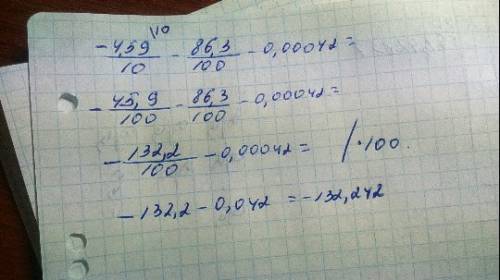 - 4,59\10/10 - 86,3/100 - 0,00042 =
- 45,9/100 - 86,3/100 - 0,00042 =
- 132,2/100 - 0,00042 = / · 100.
- 132,2 - 0,042 = - 132,242